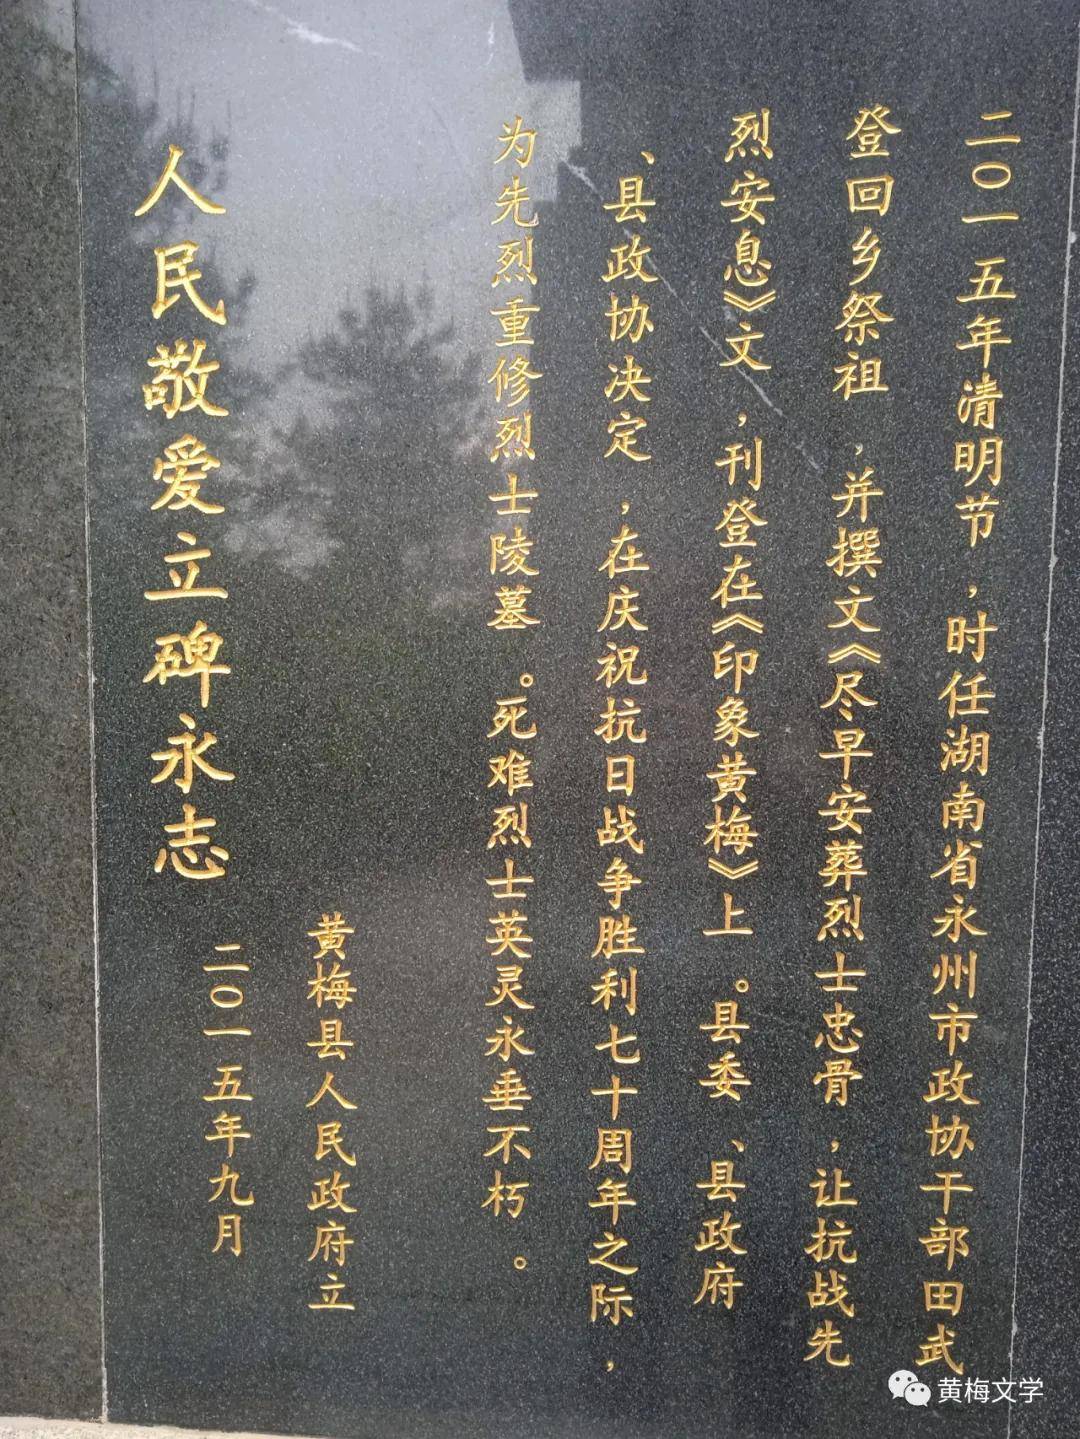 二〇一五年清明节，时任湖南省永州市政协干部田武
登回乡祭祖，并撰文《尽早安葬烈士忠骨，让抗战先
烈安息》文，刊登在《印象黄梅》上。县委、县政府
、县政协决定，在庆祝抗日战争胜利七十周年之际，
为先烈重修烈士陵墓。死难烈士英灵永垂不朽。
黄梅县人民政府立
二〇一五年九月
人民敬爱立碑永志
黄梅文学